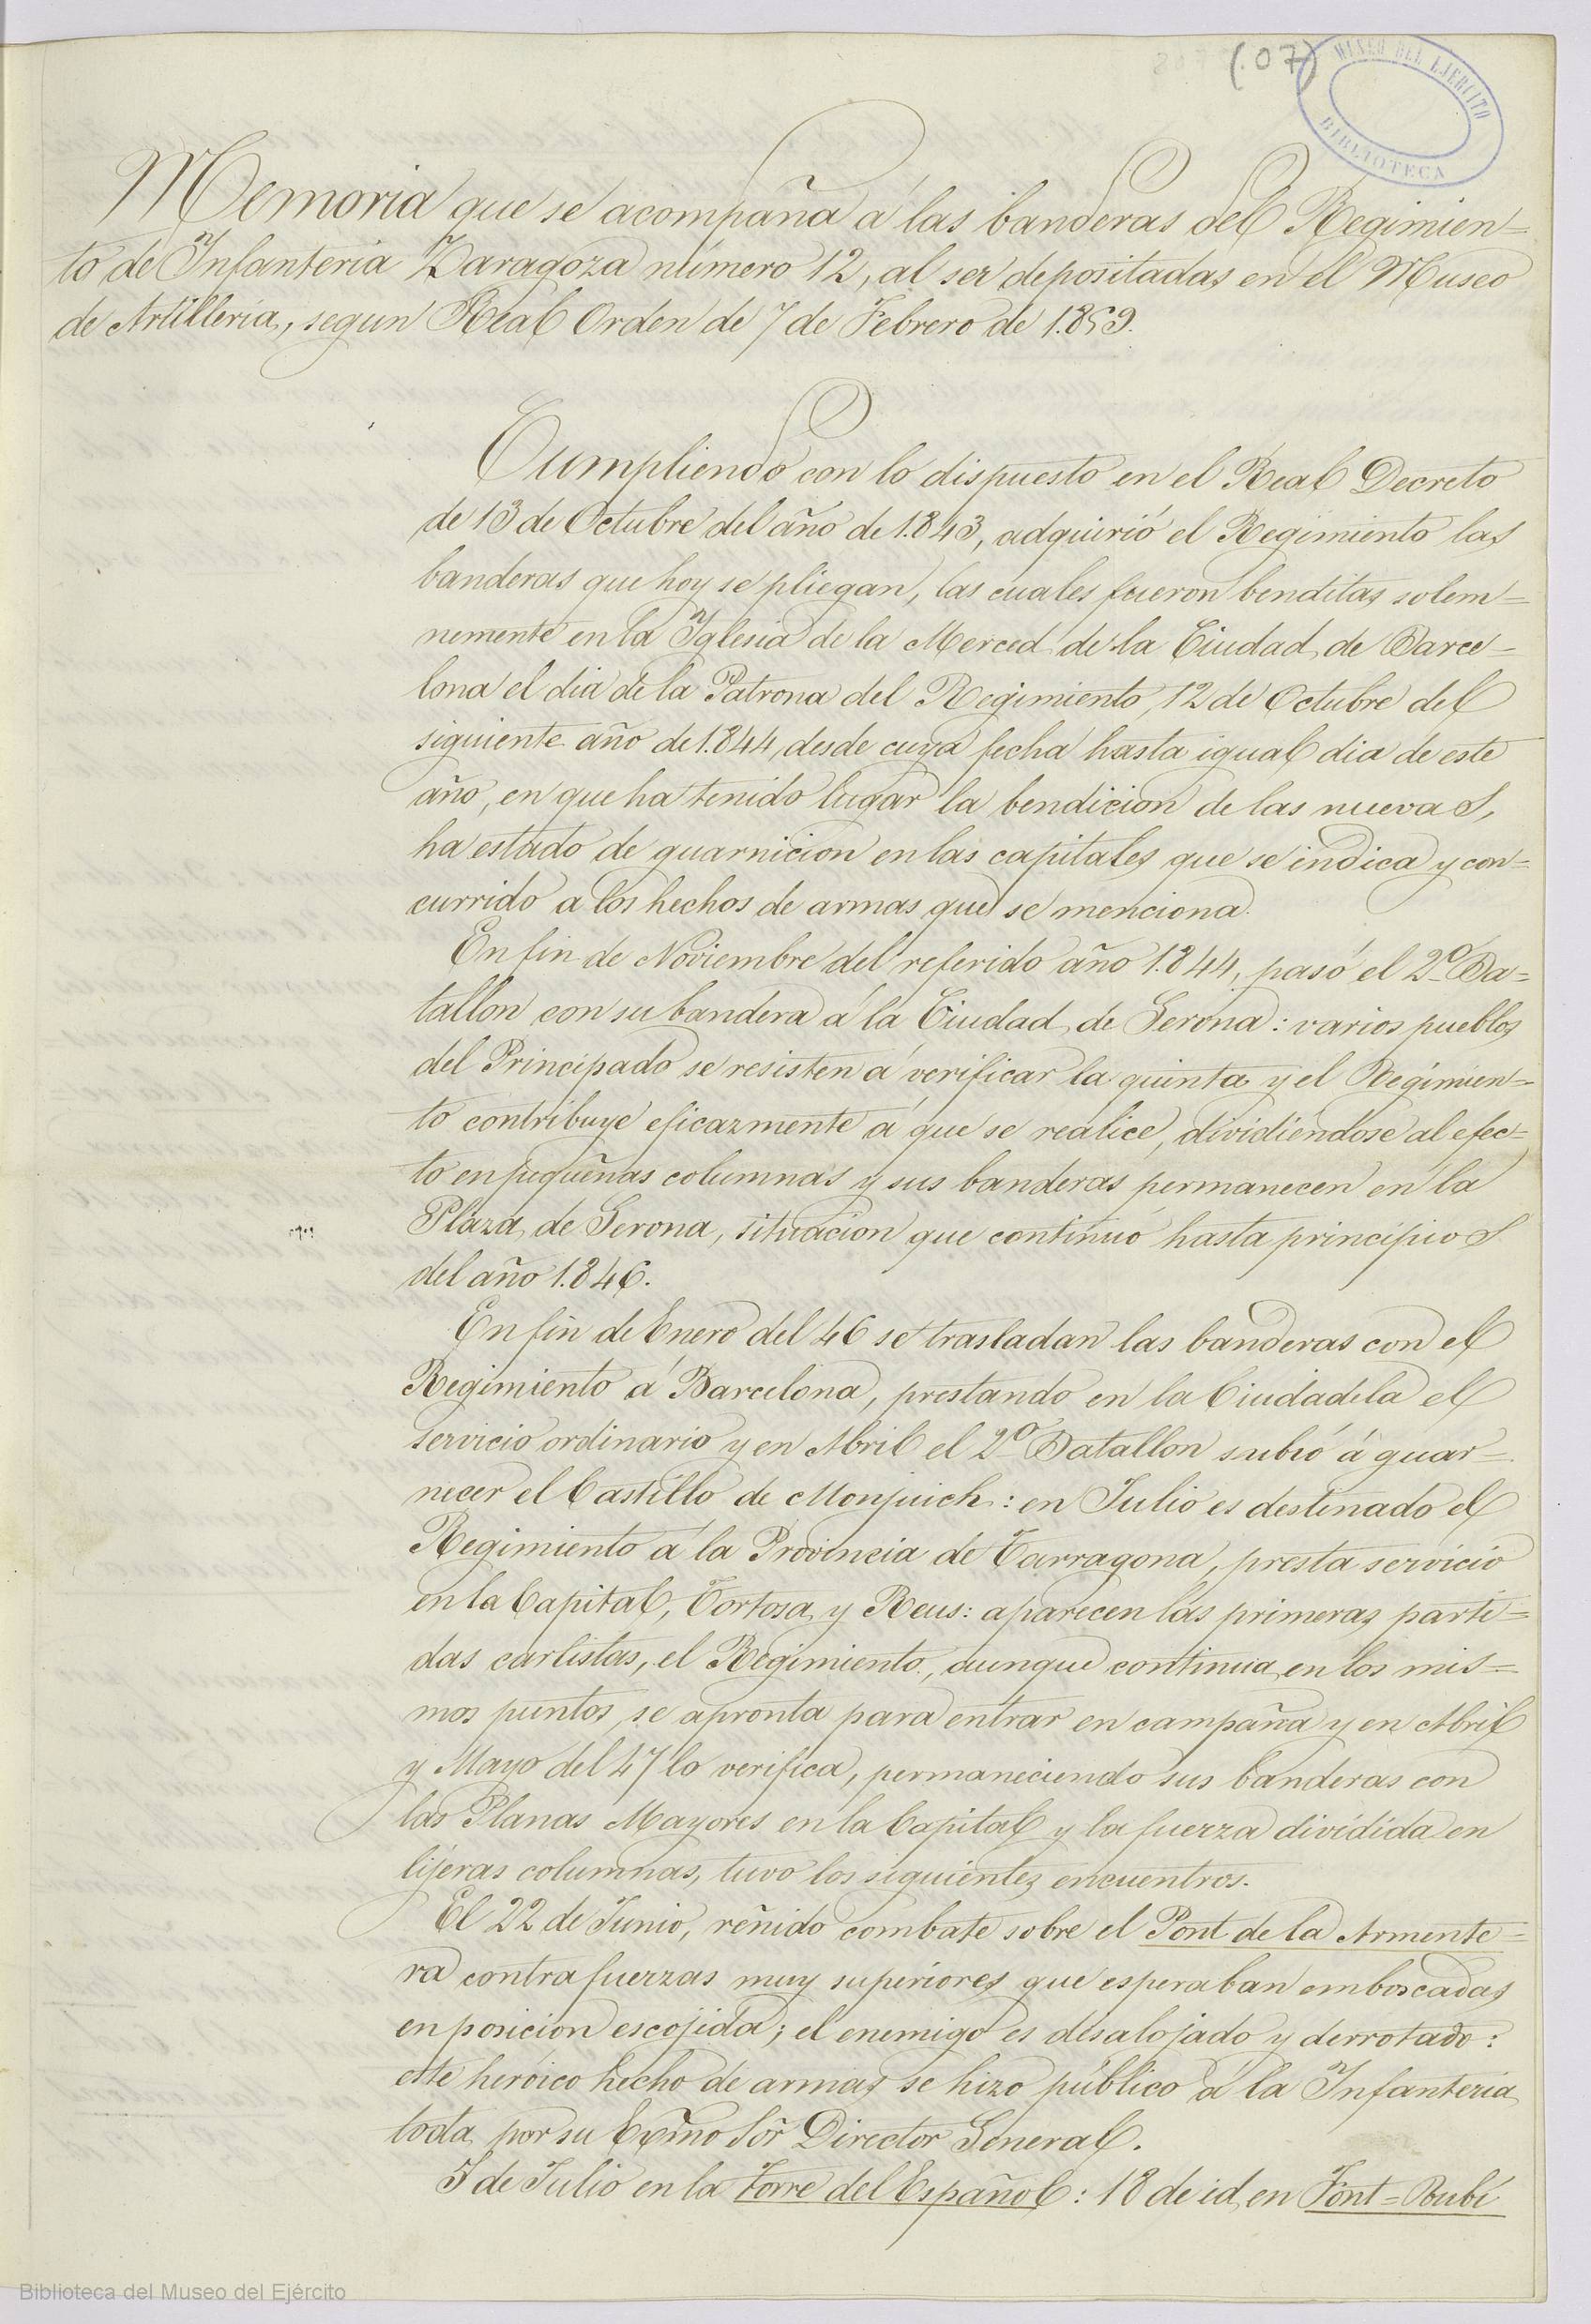 (.07)
MUSEO DEL EJERCITO
BIBLIOTECA
Memoria que se acompaña á las banderas del Regimien=
to de Infanteria Zaragoza número 12, al ser depositadas en el Museo
de Artilleria, segun Real Orden de 7 de Febrero de 1.859.
Cumpliendo con lo dispuesto en el Real Decreto
de 13 de Octubre del año de 1.843, adquirió el Regimiento las
banderas que hoy se pliegan, las cuales fueron benditas solem=
nemente en la Iglesia de la Merced de la Ciudad de Barce=
lona el dia de la Patrona del Regimiento, 12 de Octubre del
siguiente año de 1.844, desde cuya fecha hasta igual dia de este
año, en que ha tenido lugar la bendicion de las nuevas,
ha estado de guarnicion en las capitales que se indica y con=
currido a los hechos de armas que se menciona.
En fin de Noviembre del referido año 1.844, pasó el 2º Ba=
tallon con su bandera á la Ciudad de Gerona: varios pueblos
del Principado se resisten á verificar la quinta y el Regimien=
to contribuye eficazmente á que se realice, dividiendose al efec=
to en pequeñas columnas y sus banderas permanecen en la
Plaza de Gerona, situacion que continuó hasta principios
del año 1.846.
En fin de Enero del 46 se trasladan las banderas con el
Regimiento á Barcelona, prestando en la Ciudadela el
servicio ordinario y en Abril el 2º Batallon subió á guar=
necer el Castillo de Monjuich: en Julio es destinado el
Regimiento á la Provincia de Tarragona, presta servicio
en la Capital, Tortosa y Reus: aparecen las primeras parti=
das carlistas, el Regimiento, aunque continua en los mis=
mos puntos, se apronta para entrar en campaña y en Abril
y Mayo del 47 lo verifica, permaneciendo sus banderas con
las Planas Mayores en la Capital y la fuerza dividida en
lijeras columnas, tuvo los siguientes encuentros.
El 22 de Junio, reñido combate sobre el Pont de la Armente=
ra contra fuerzas muy superiores que esperaban emboscadas
en posicion escojida; el enemigo es desalojado y derrotado:
este heróico hecho de armas se hizo público á la Infanteria
toda por su Exmo Sôr Director General.
3 de Julio en la Torre del Español: 18 de id en Font=Rubí
Biblioteca del Museo del Ejército